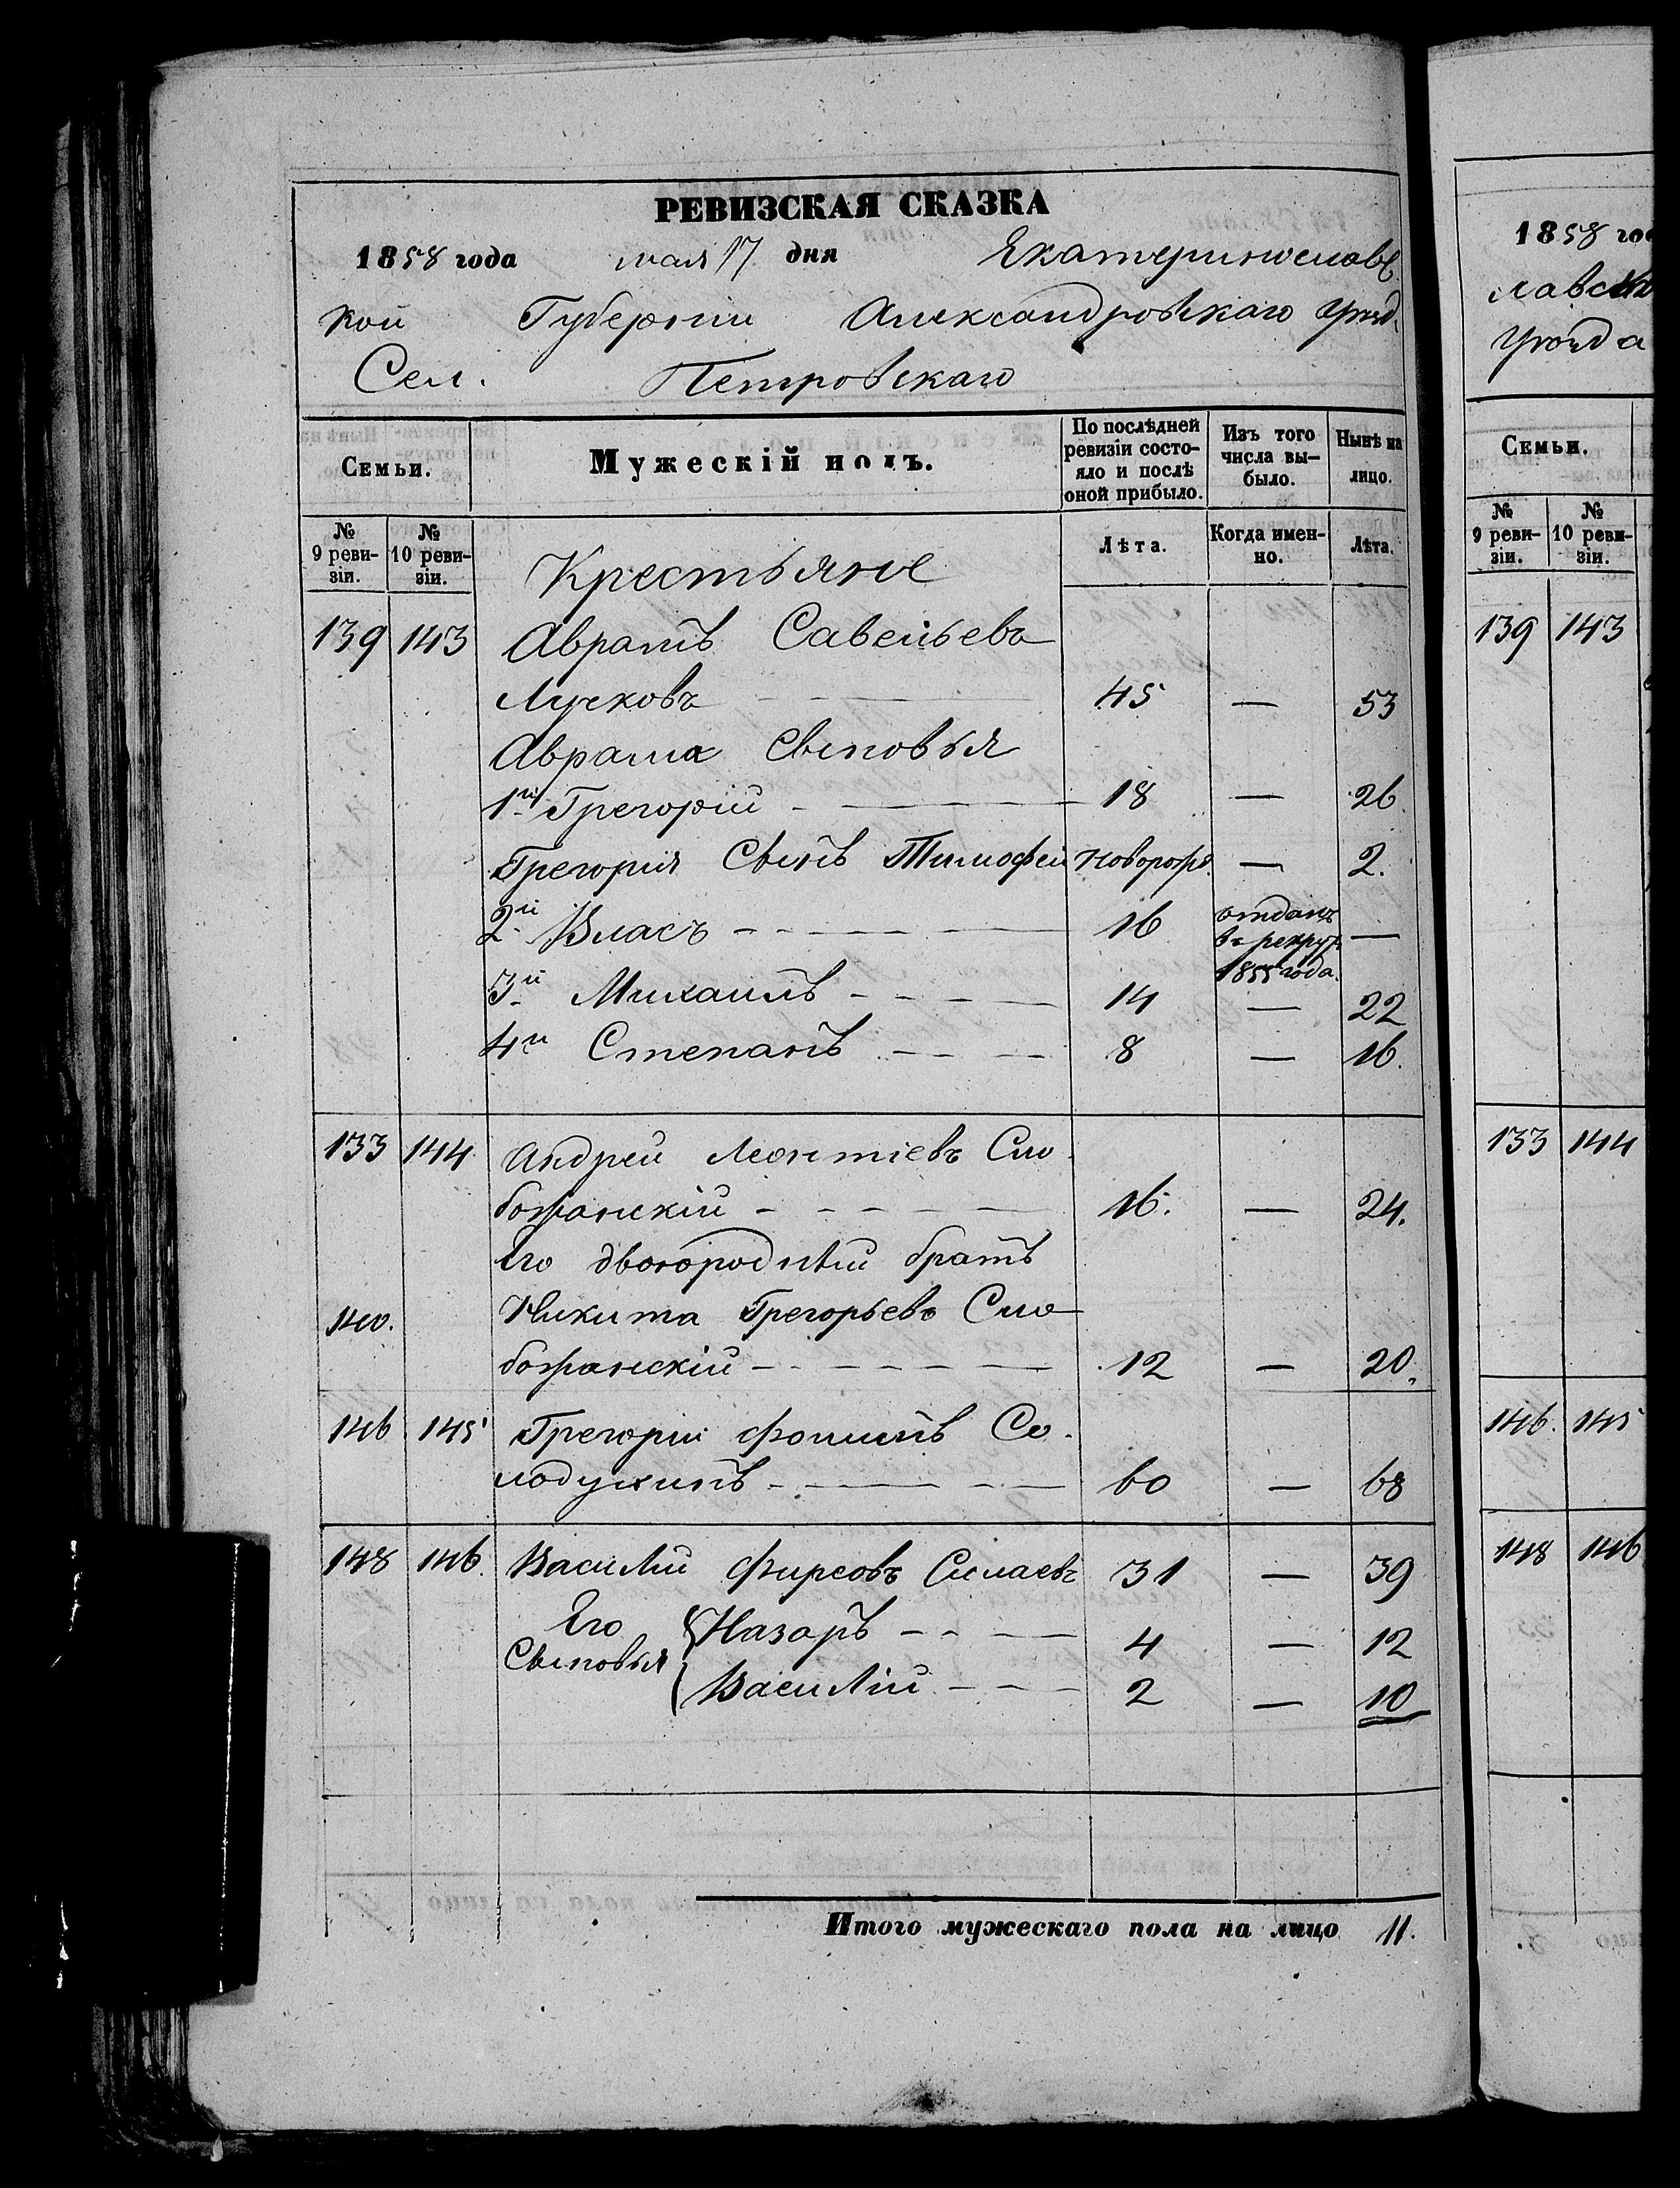 РЕВИЗСКАЯ СКАЗКА
1858 года мая 17 дня Екатеринославс
кой Губернии Александровскаго уезд.
Сел. Петровскаго
Семьи. Мужескій полъ. По послѣдней ревизіи состо-яло и послѣ оной прибыло. Изъ того числа вы-было. Нынѣ на лицо.
№ 9 реви-зіи. № 10 реви-зіи. Лѣта. Когда имен-но. Лѣта.
Крестьяне
139 143 Аврамъ Савельевъ
Лучковъ 45 — 53
Аврама Сыновья
1й Грегорій 18 — 26.
Грегорія Сынъ Тимофей новорожд. — 2.
2й Власъ 16 отданъ въ рекрут. 1855 года. —
3й Михаилъ 14 — 22
4й Степанъ 8 — 16.
133 144. Андрей Леонтіевъ Сло
божанскій 16. — 24.
Его двоюродный братъ
140. Никита Грегорьевъ Сло
божанскій 12 — 20.
146 145 Грегорій Фоминъ Со.
лодухинъ 60 — 68
148 146. Василій Фирсовъ Силаевъ 31 — 39
Его Сыновья { Назаръ 4 — 12
Василій 2 — 10
Итого мужескаго пола на лицо 11.
1858 го
лавск
уезда
Семьи.
№ 9 реви-зіи. № 10 реви-зіи.
139 143
133 144
146. 145
148 146